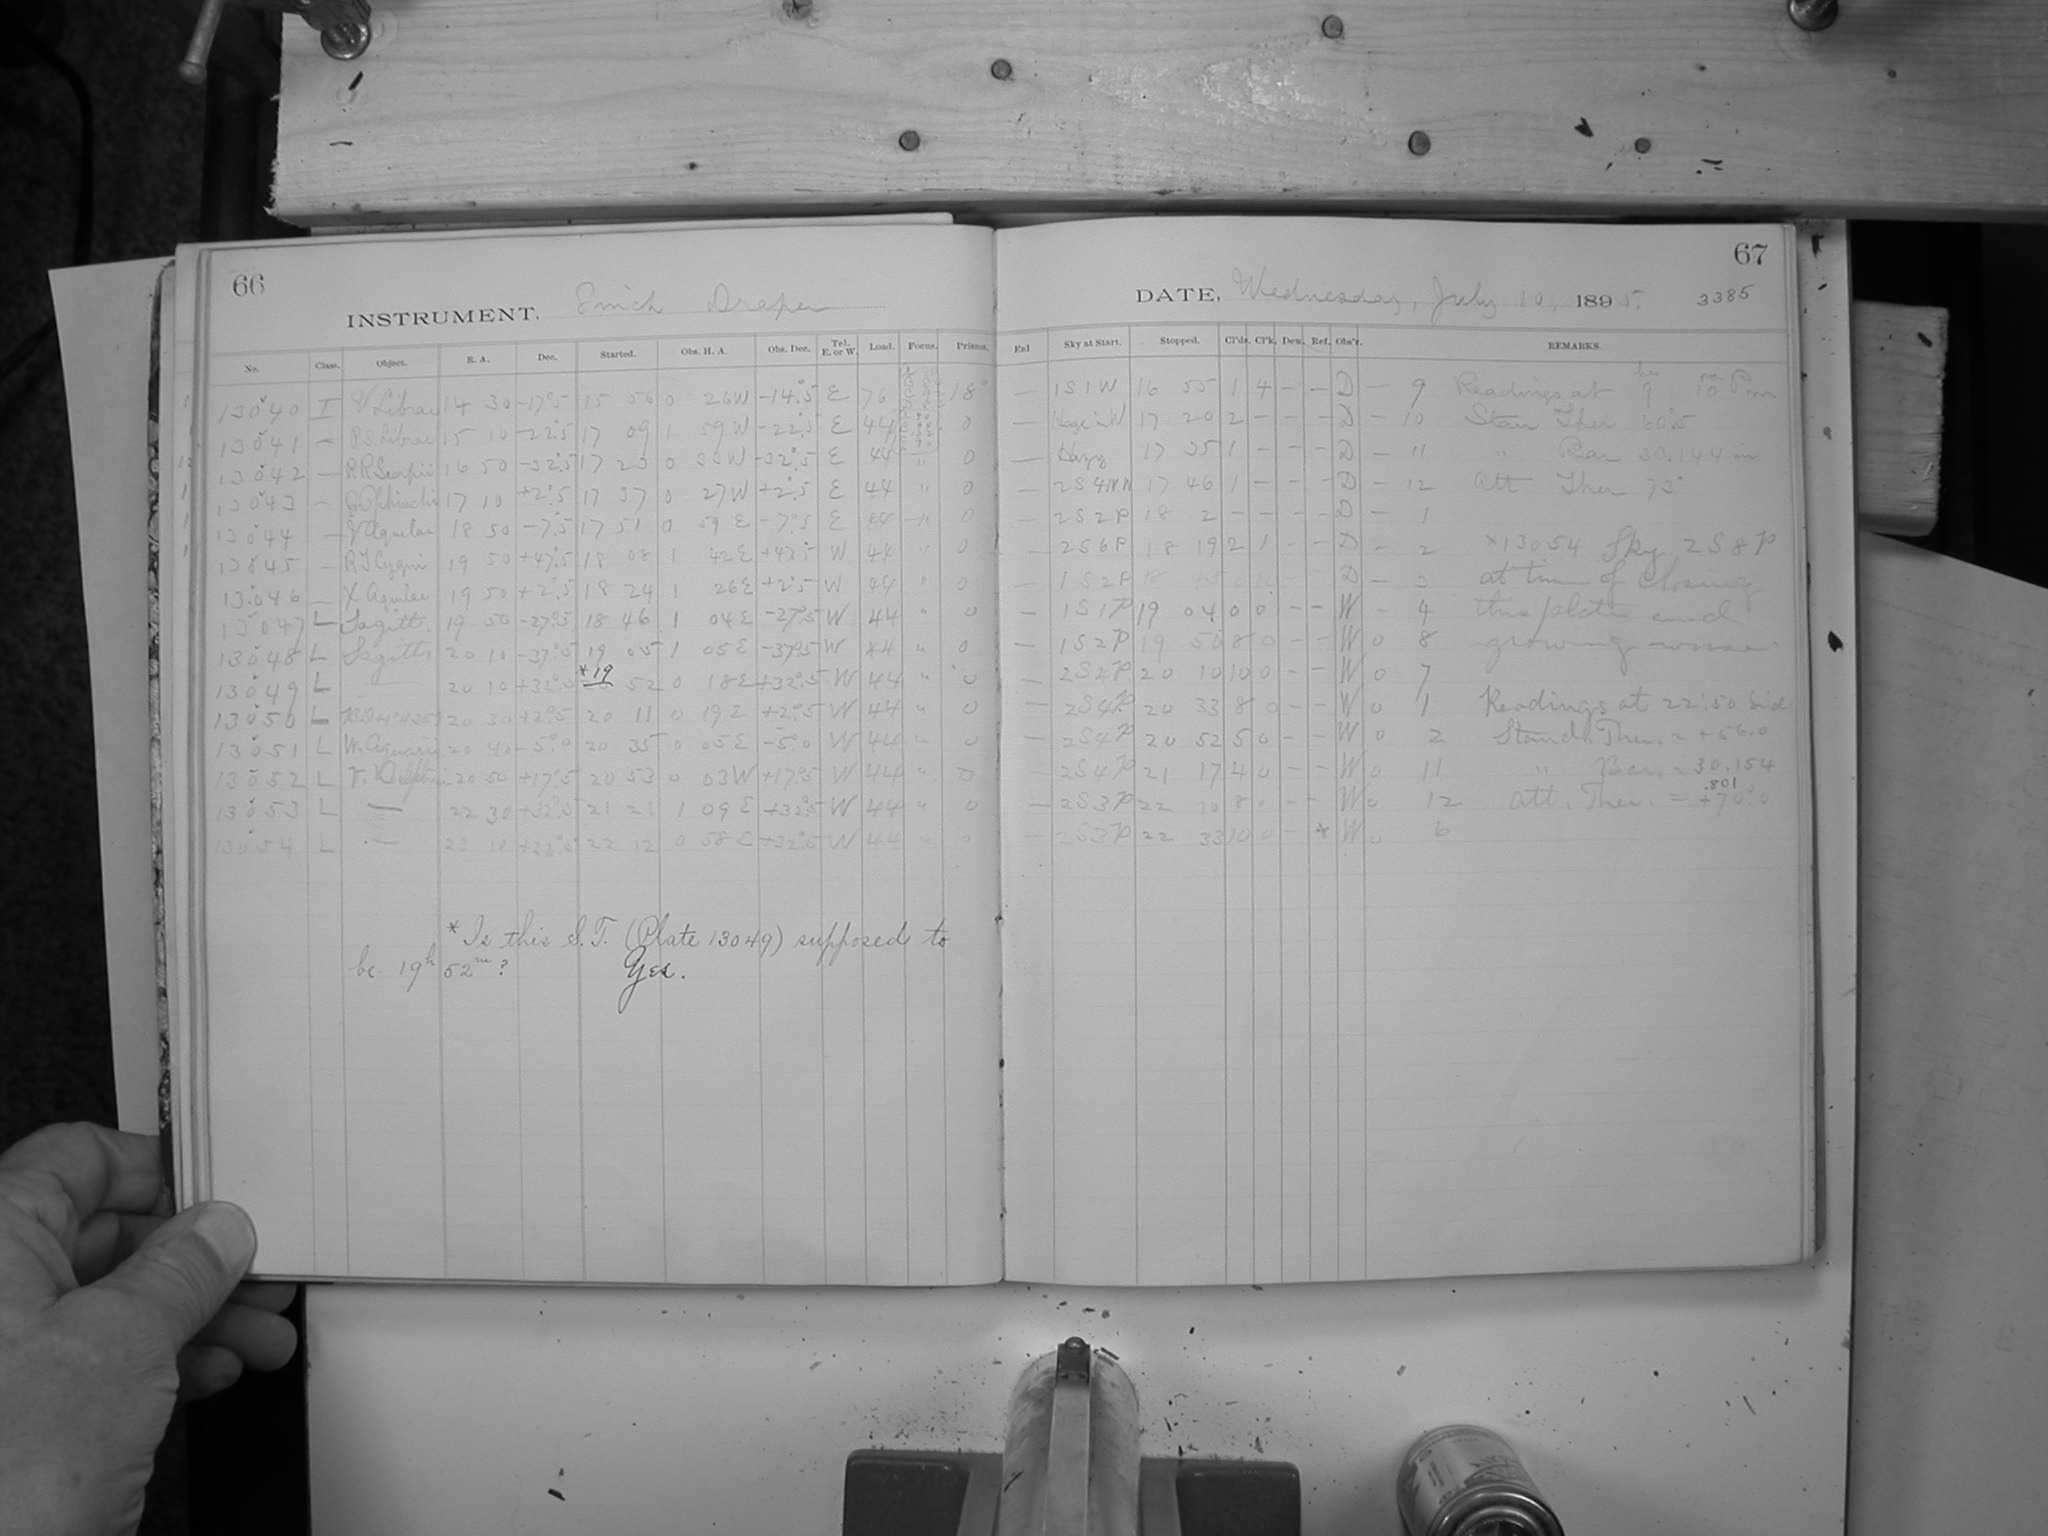 66
INSTRUMENT, 8 inch Draper
No. Class. Object. R. A. Dec. Started. Obs. H. A. Obs. Dec. Tel. E. or W. Load. Focus. Prisms.
13040 I V Librae 14 30 -17°.5 15 56 0 26W -14°.5 E 76 18°
13041 RS Librae 15 10 -22°.5 17 09 1 59W -22°.5 E 44 0
13042 — RR Scorpii 16 50 -32°.5 17 23 0 33W -32°.5 E 44 " 0
13043 — 17 10 +2°.5 17 37 0 27W +2°.5 E 44 " 0
13044 — V Aquilae 18 50 -7°.5 17 51 0 59E -7°.5 E 44 " 0
13045 — RT Cygni 19 50 +47°.5 18 08 1 42E +47°.5 W 44 " 0
13046 — X Aquilae 19 50 +2°.5 18 24 1 26E +2°.5 W 44 " 0
13047 L Sagitt. 19 50 -27°.5 18 46 1 04E -27°.5 W 44 " 0
13048 L Sagitt. 20 10 -37°.5 19 05 1 05E -37°.5 W 44 " 0
*19
13049 L — 20 10 +32°.5 52 0 18E +32°.5 W 44 " 0
13050 L 20 30 +2°.5 20 11 0 19E +2°.5 W 44 " 0
13051 L W. Aquarii 20 40 -5°.0 20 35 0 05E -5°.0 W 44 " 0
13052 L Delphini 20 50 +17°.5 20 53 0 03W +17°.5 W 44 " 0
13053 L — 22 30 +32°.5 21 21 1 09E +32°.5 W 44 " 0
13054 L — 23 10 +32°.5 22 12 0 58E +32°.5 W 44 " 0
* Is this S.T. (Plate 13049) supposed to
be 19h 52m? Yes.
67
DATE, Wednesday, July 10, 1895. 3385
Exl Sky at Start. Stopped. Cl'ds. Cl'k. Dew. Ref. Obs'r. REMARKS.
— 1S1W 16 55 1 4 – – D – 9 Readings at 9 hrs 10 m P.m
— Haze in W 17 20 2 – – – D – 10 Stan Ther 60°.5
— Hazy 17 35 1 – – – D – 11 " Bar 30.144 in
— 2S4 17 46 1 – – – D – 12 Att Ther 73°
— 2S2P 18 2 – – – – D – 1
— 2S6P 18 19 2 1 – – D – 2 *13054 Sky 2S8P
— 1S2P 18 45 D – 3 at time of closing
— 1S1P 19 04 0 0 – – W – 4 this plate and
— 1S2P 19 50 8 0 – – W 0 8 growing worse
— 2S4P 20 10 10 0 – – W 0 7
— 2S4P 20 33 8 0 – – W 0 1 Readings at 22:50 Sid
— 2S4P 20 52 5 0 – – W 0 2 Stand. Ther. = +56.0
— 2S4P 21 17 4 0 – – W 0 11 " Bar. = 30.154
.801
— 2S3P 22 10 8 0 – – W 0 12 Att. Ther. = +70°.0
— 2S3P 22 33 10 0 – * W 0 6